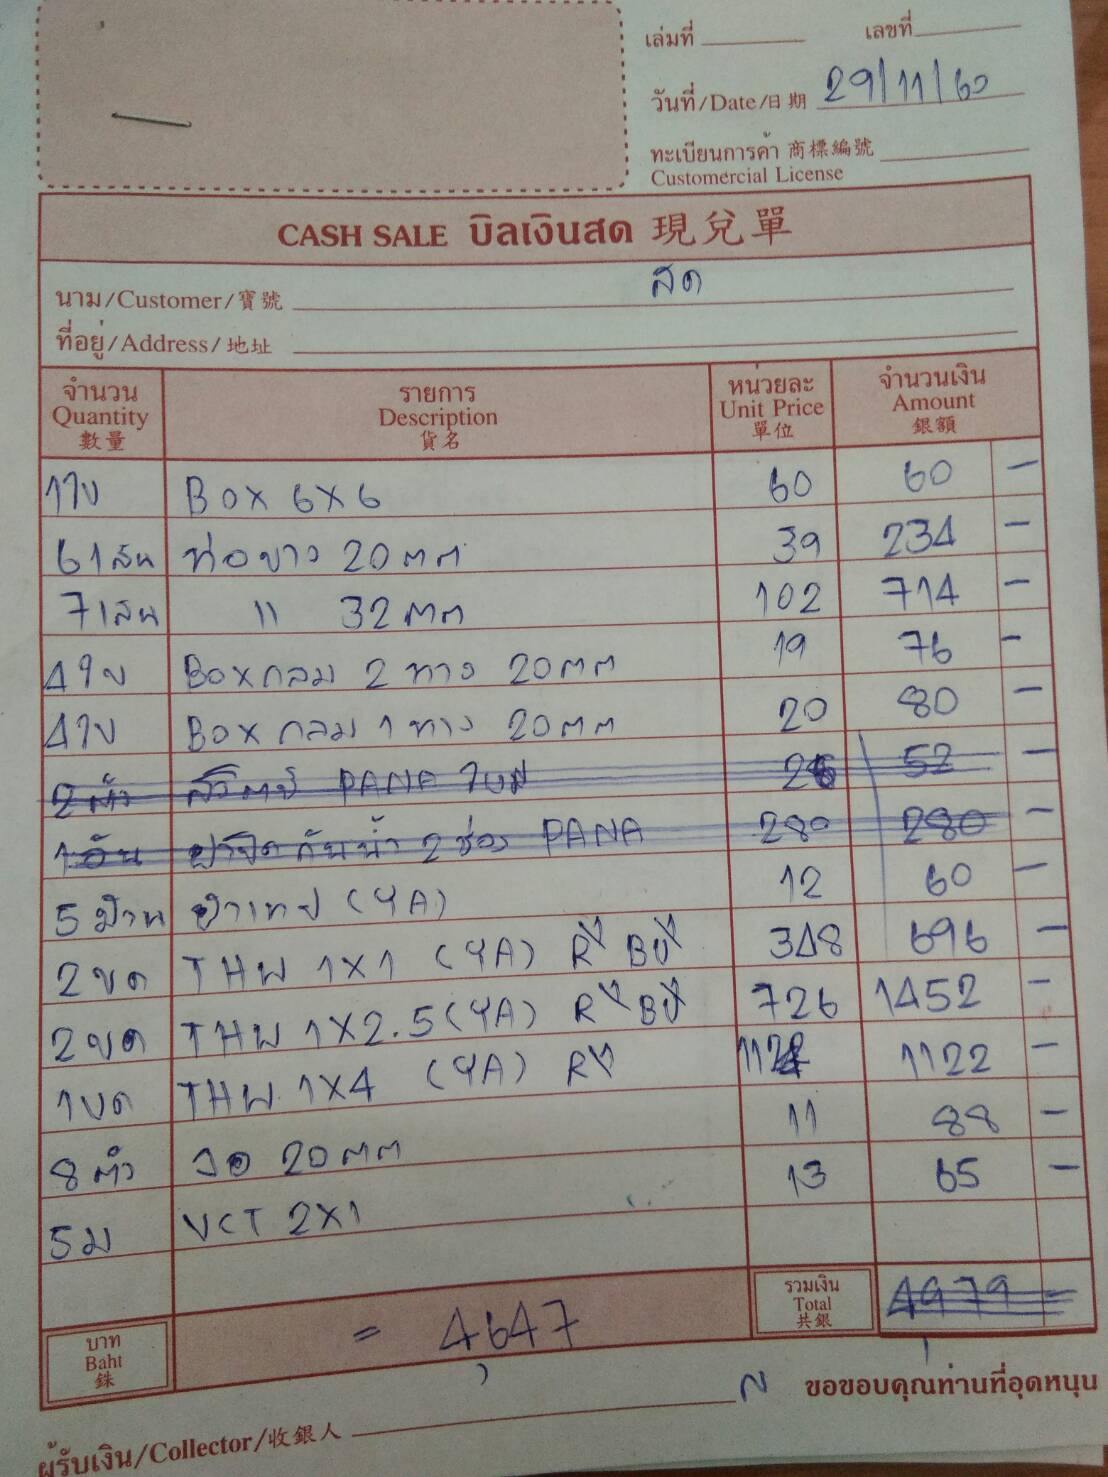 เล่มที่ เลขที่
วันที่/Date/日期 29/11/60
ทะเบียนการค้า 商標編號
Customercial License
CASH SALE บิลเงินสด 現兌單
นาม/Customer/寶號 สด
ที่อยู่/Address/地址
จำนวน Quantity 數量 รายการ Description 貨名 หน่วยละ Unit Price 單位 จำนวนเงิน Amount 銀額
1ใบ BOX 6X6 60 60 -
6เส้น ท่อขาว 20มม 39 234 -
7เส้น " 32มม 102 714 -
4ใบ Boxกลม 2 ทาง 20มม 19 76 -
4ใบ Box กลม 1 ทาง 20มม 20 80 -
2 ตัว สวิตซ์ PANA 26 52 -
1 อัน ฝาปิดกันน้ำ 2 ช่อง PANA 280 280 -
5 ม้วน ผ้าเทป (YA) 12 60 -
2 ขด THW 1X1 (YA) 348 696 -
2 ขด THW 1X2.5 (YA) 726 1452 -
1 ขด THW 1X4 (YA) 1122 1122 -
8 ตัว งอ 20มม 11 88 -
5ม VCT 2X1 13 65 -
รวมเงิน Total 共銀 4979 -
บาท Baht 銖 = 4,647
ขอขอบคุณท่านที่อุดหนุน
ผู้รับเงิน/Collector/收銀人